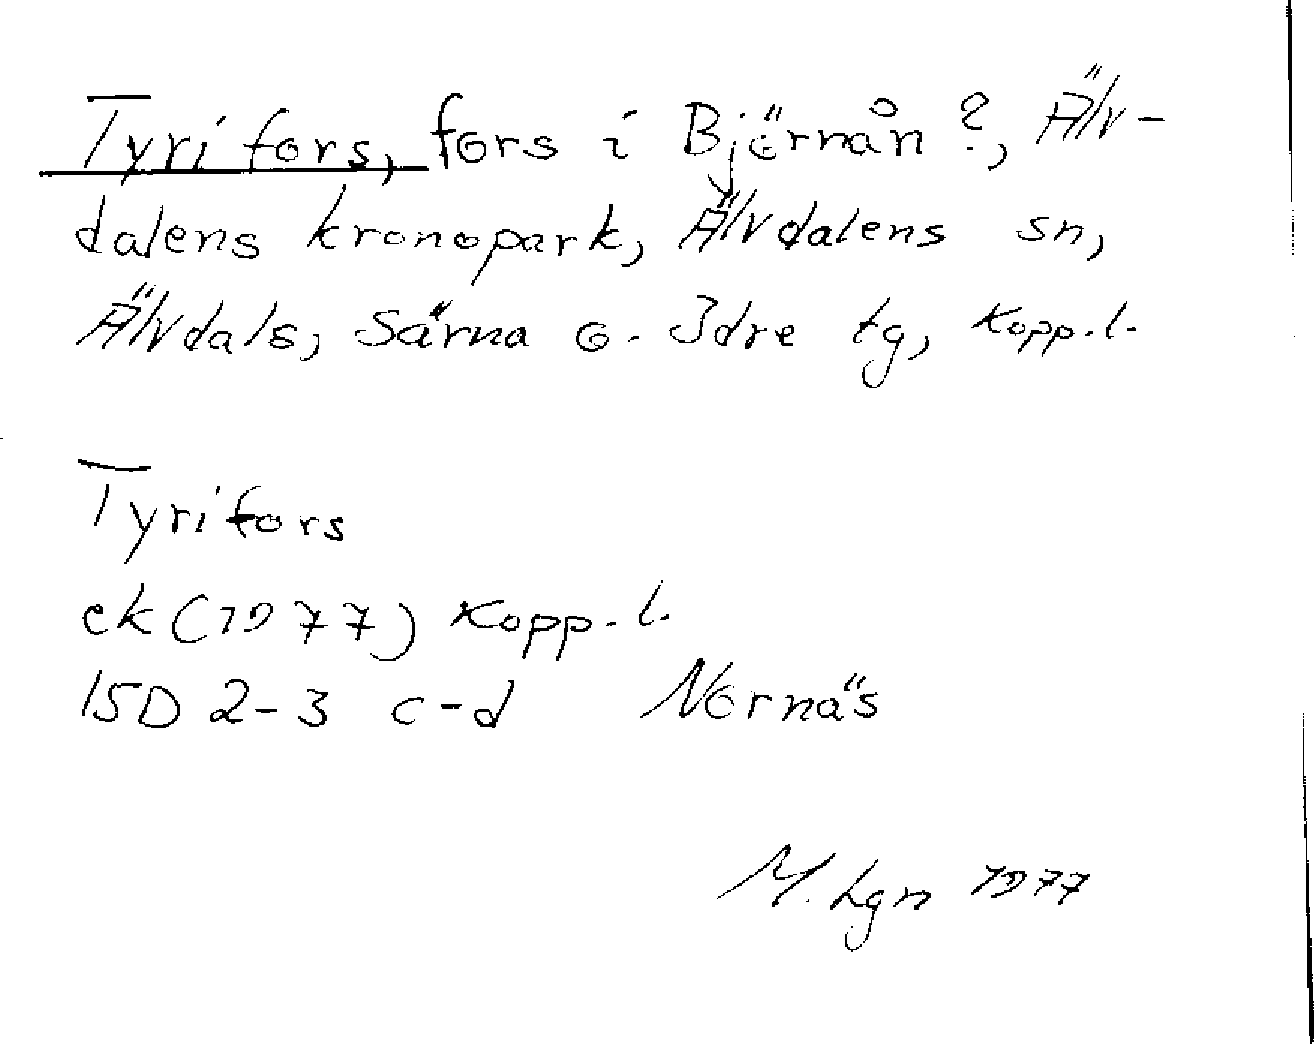 Tyrifors, fors i Björnån?, Älv-
dalens kronopark, Älvdalens sn,
Älvdals, Särna o. Idre tg, Kopp.l.
Tyrifors
ek (1977) Kopp.l.
15D 2-3 c-d Nornäs
M. Lgn 1977